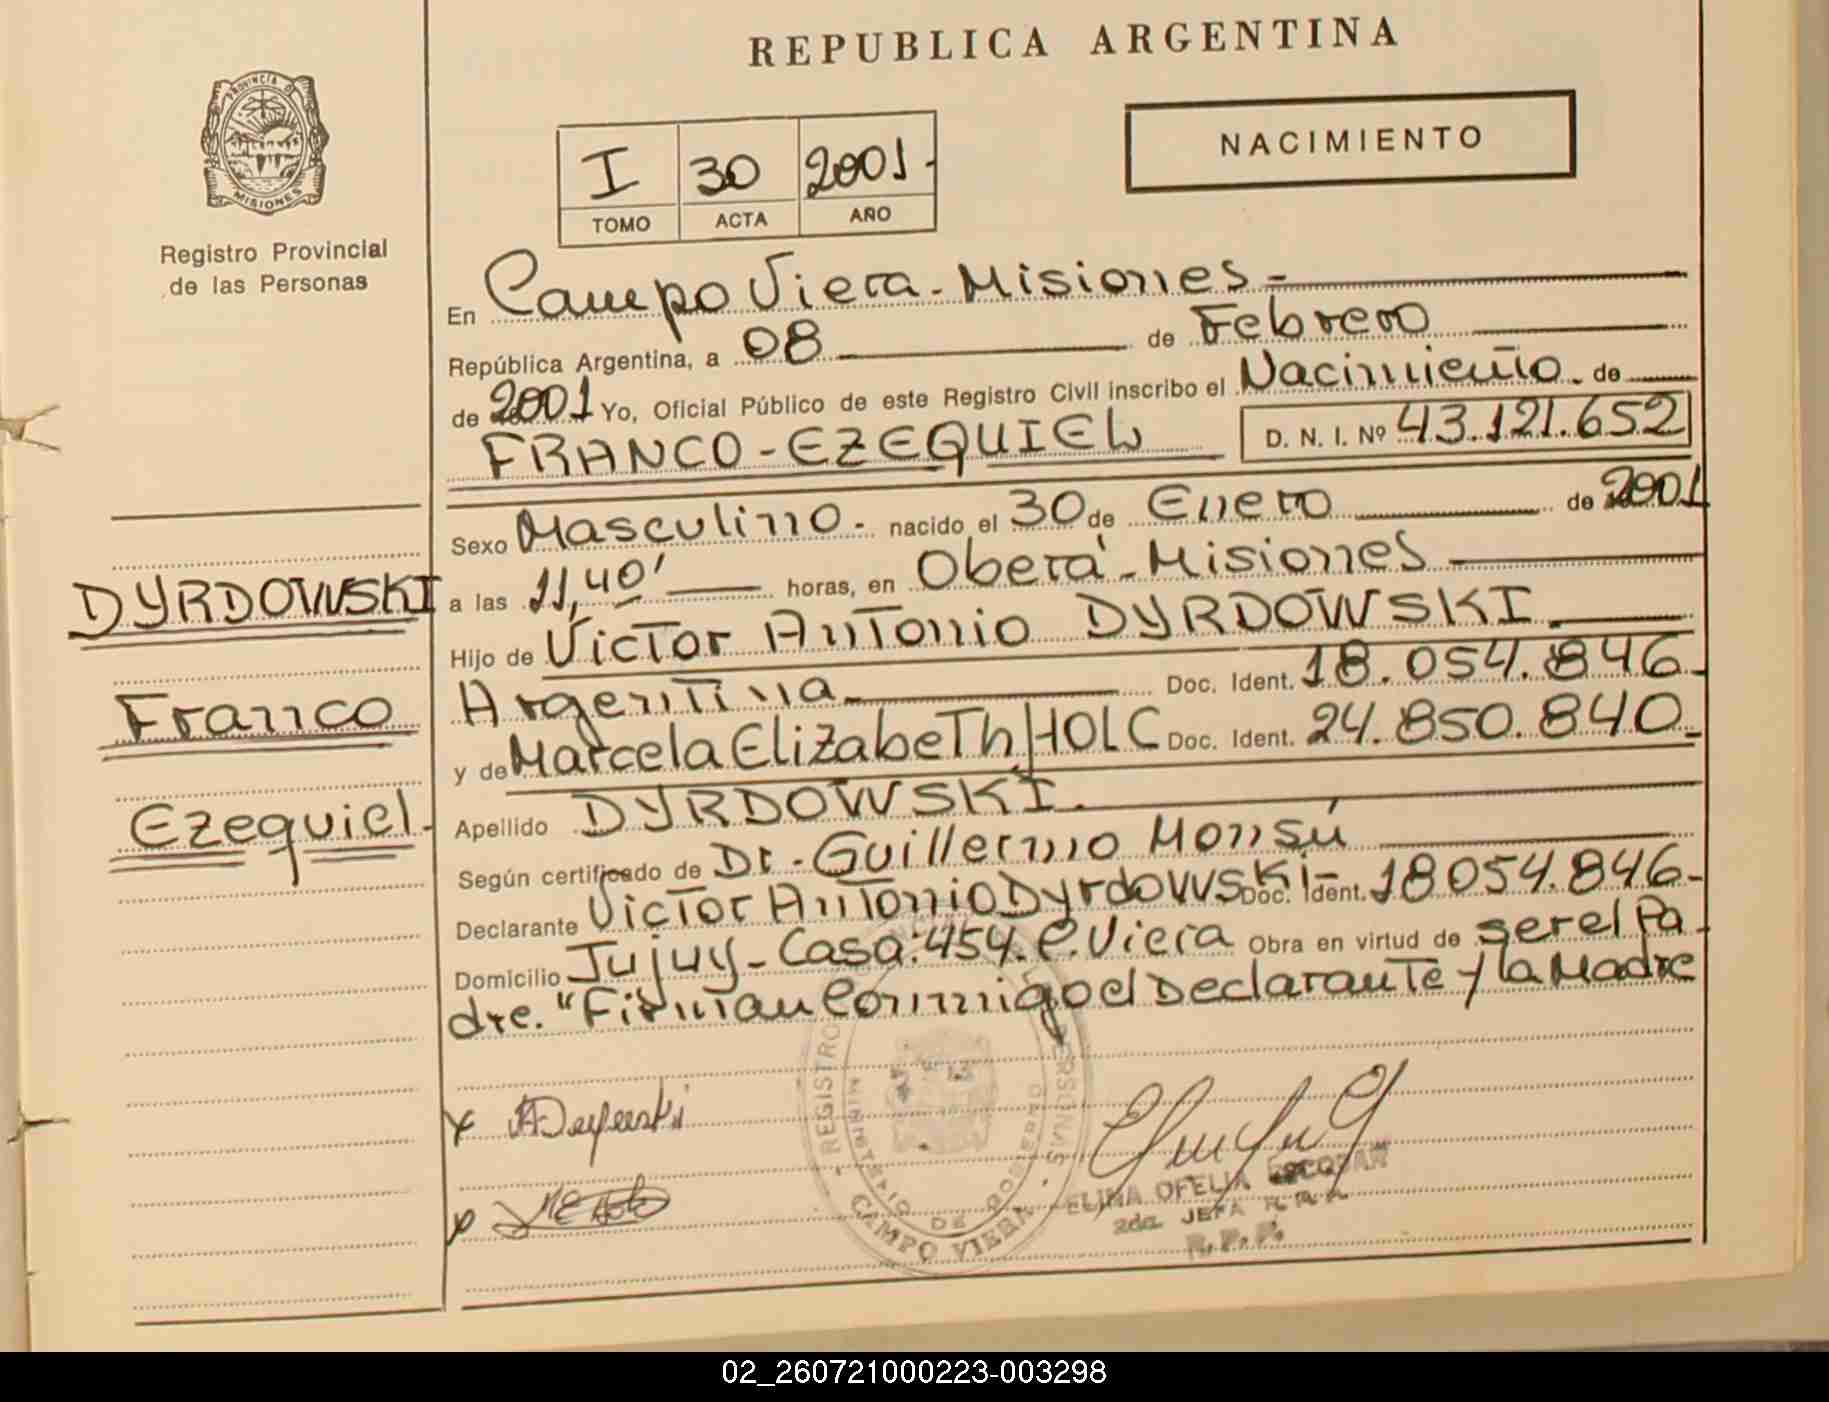 REPUBLICA ARGENTINA
PROVINCIA D
MISIONES
Registro Provincial
de las Personas
I 30 2001.
TOMO ACTA AÑO
NACIMIENTO
En Campo Viera - Misiones -
República Argentina, a 08 de Febrero
de 2001 Yo, Oficial Público de este Registro Civil inscribo el Nacimiento de
FRANCO - EZEQUIEL D. N. I. Nº 43.121.652
Sexo Masculino. nacido el 30 de Enero de 2001
a las 11,40' horas, en Oberá - Misiones
Hijo de Victor Antonio DYRDOWSKI.
Argentina Doc. Ident. 18.054.846
y de Marcela Elizabeth HOLC Doc. Ident. 24.850.840
Apellido DYRDOWSKI.
Según certificado de Dr. Guillermo Monsú
Declarante Victor Antonio Dyrdowski - Doc. Ident. 18054.846-
Domicilio Jujuy - Casa: 454. C. Viera Obra en virtud de ser el Pa
dre. "Firman Conmigo el Declarante y la Madre
DYRDOWSKI
Franco
Ezequiel.
REGISTRO PERSONAS
MINISTERIO DE GOBIERNO
CAMPO VIERA
ELINA OFELIA ESCOBAR
2da JEFA
R.P.P.
02_260721000223-003298